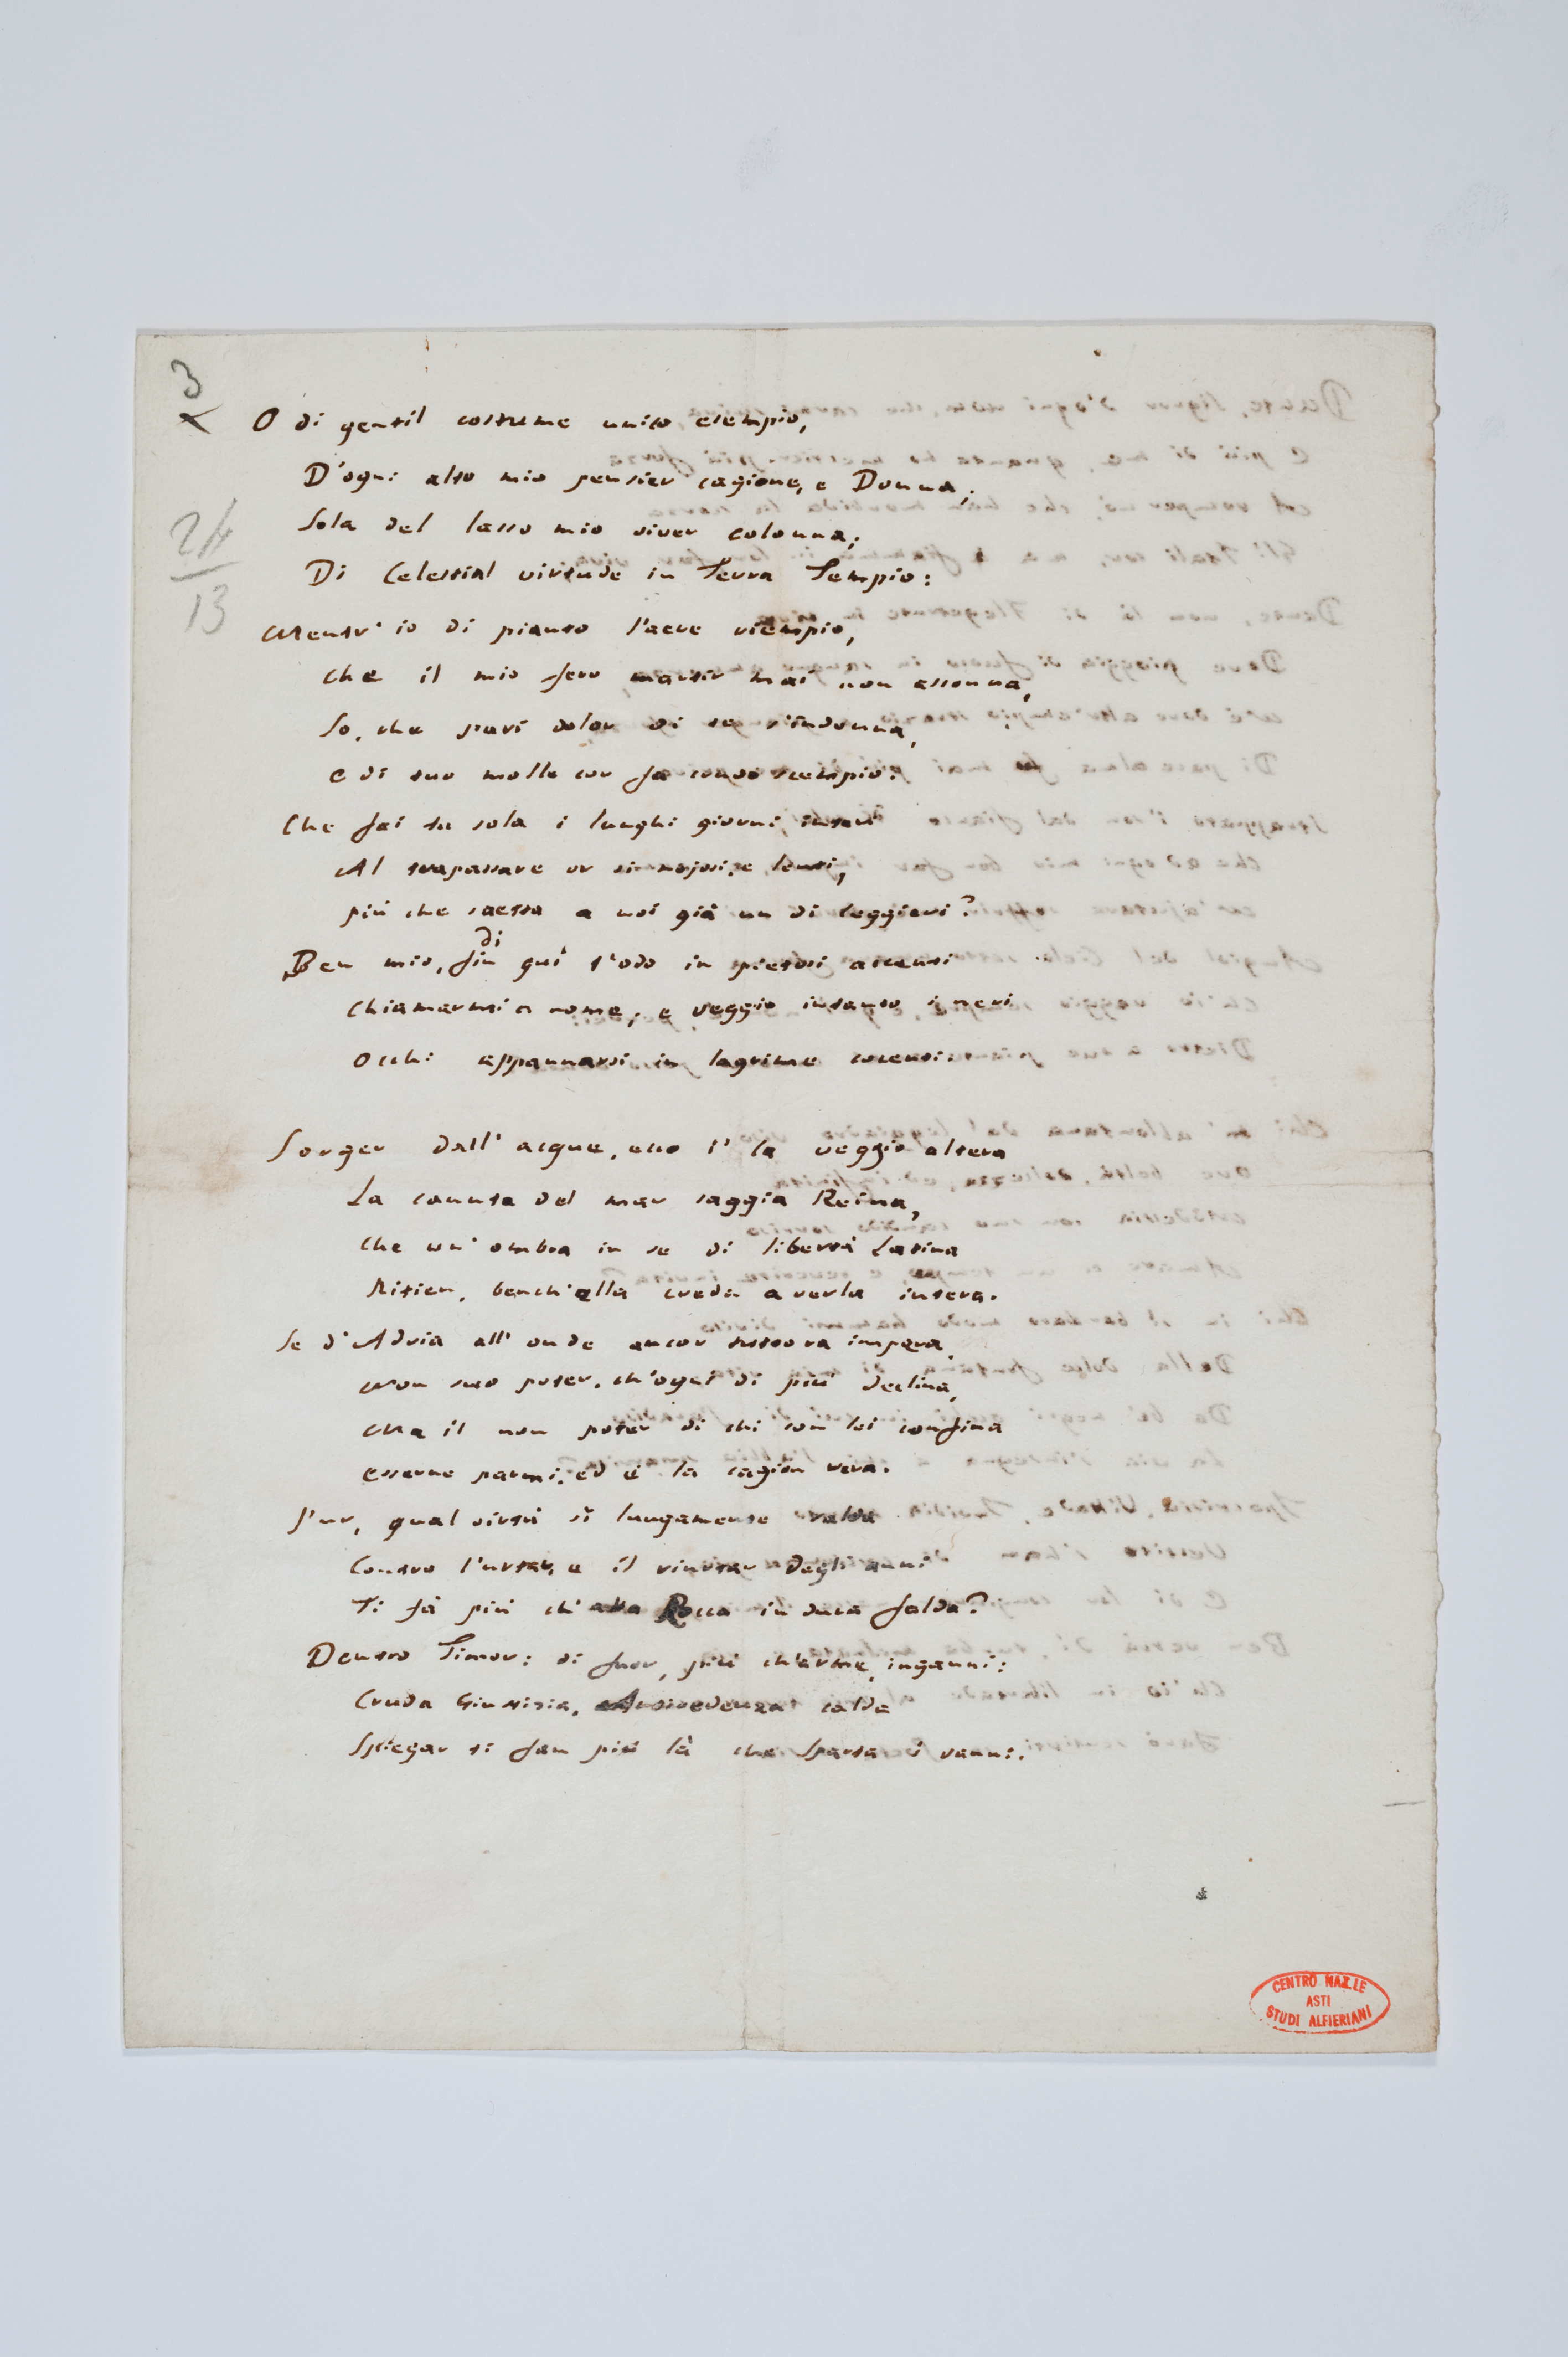 3
24
13
O di gentil costume unico esempio,
D'ogni alto mio pensier cagione, e Donna;
Sola del lasso mio viver colonna;
Di Celestial virtude in Terra Tempio:
Mentr' io di pianto l'aere riempio,
Che il mio fero martir mai non assonna,
So, che pari dolor di te s'indonna,
E di tuo molle cor fa crudo scempio.
Che fai tu sola i lunghi giorni interi
Al trapassare or sì nojosi, e lenti,
Più che saetta a noi già un dì leggieri?
di
Ben mio, fin quì t'odo in pietosi accenti
Chiamarmi a nome, e veggio intanto i neri
Occhi appannarsi in lagrime cocenti.
Sorger dall' acque, ecco l' la veggio altera
La canuta del mar saggia Reina,
Che un' ombra in se di libertà Latina
Ritien, bench'ella creda averla intera.
Se d'Adria all' onde ancor tuttora impera,
Non suo poter, ch'ogni dì più declina,
Ma il non poter di chi con lei confina
Esserne parmi, ed è la cagion vera.
Pur, qual virtù sì lungamente salda
Contro l'urtar, e il riurtar degli anni
Ti fa più ch' alta Rocca in dura falda?
Dentro Timor: di fuor, più ch'arme, inganni:
Cruda Giustizia, Antivedenza calda
Spiegar ti fan più là che Sparta i vanni.
CENTRO NAZ.LE
ASTI
STUDI ALFIERIANI